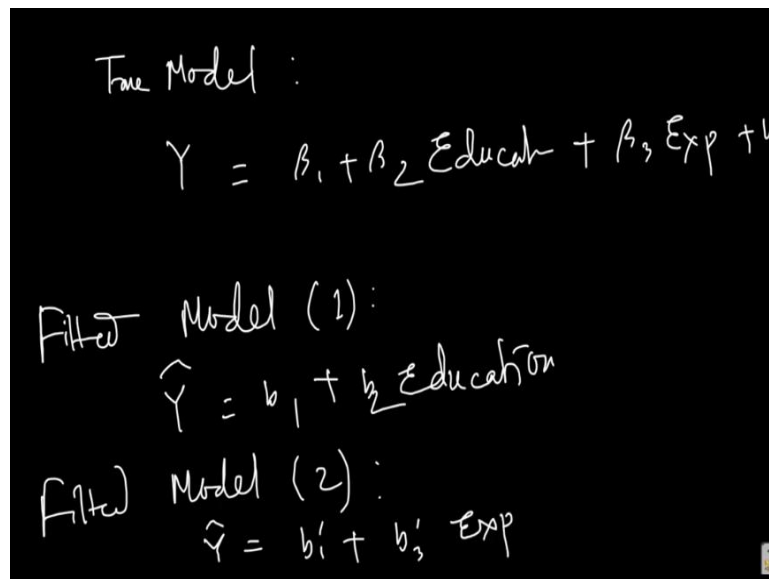 True Model :
Y = β₁ + β₂ Educatn + β₃ Exp + u
Fitted Model (1) :
Ŷ = b₁ + b₂ Education
Fitted Model (2) :
Ŷ = b₁' + b₃' Exp